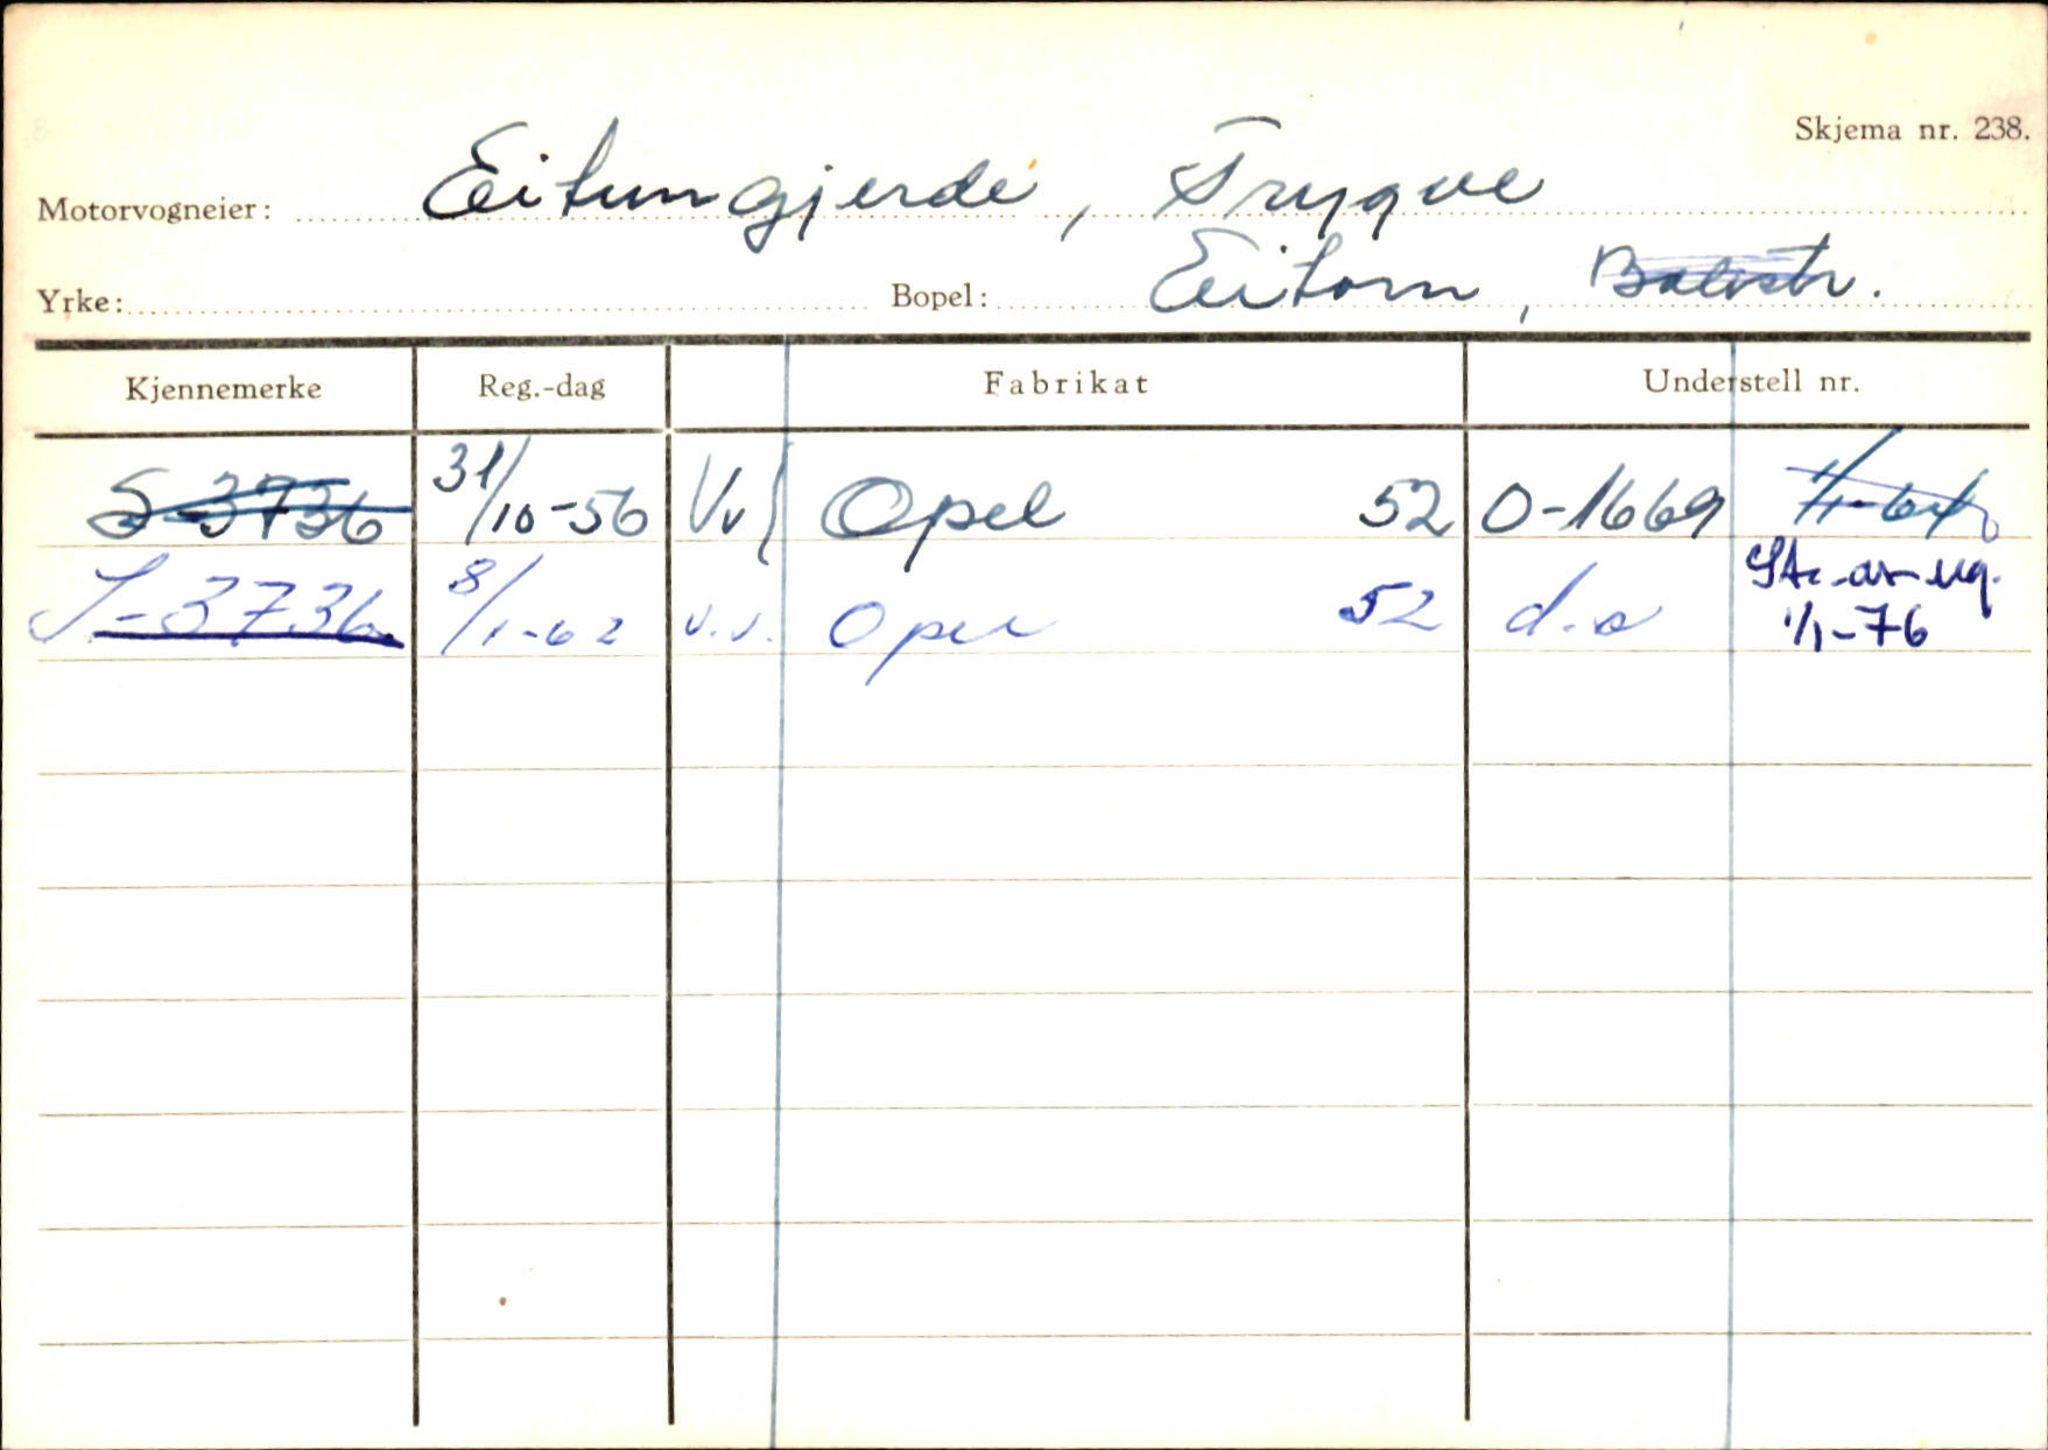 Skjema nr. 238.
Motorvogneier: Eitungjerde, Trygve
Yrke: Bopel: Eitorn, Balestr.
Kjennemerke Reg.-dag Fabrikat Understell nr.
S-3736 31/10-56 Vv Opel 52 O-1669 1/1-64
S-3736 8/1-62 v.v. Opel 52 d.o Str. av ug.
1/1-76